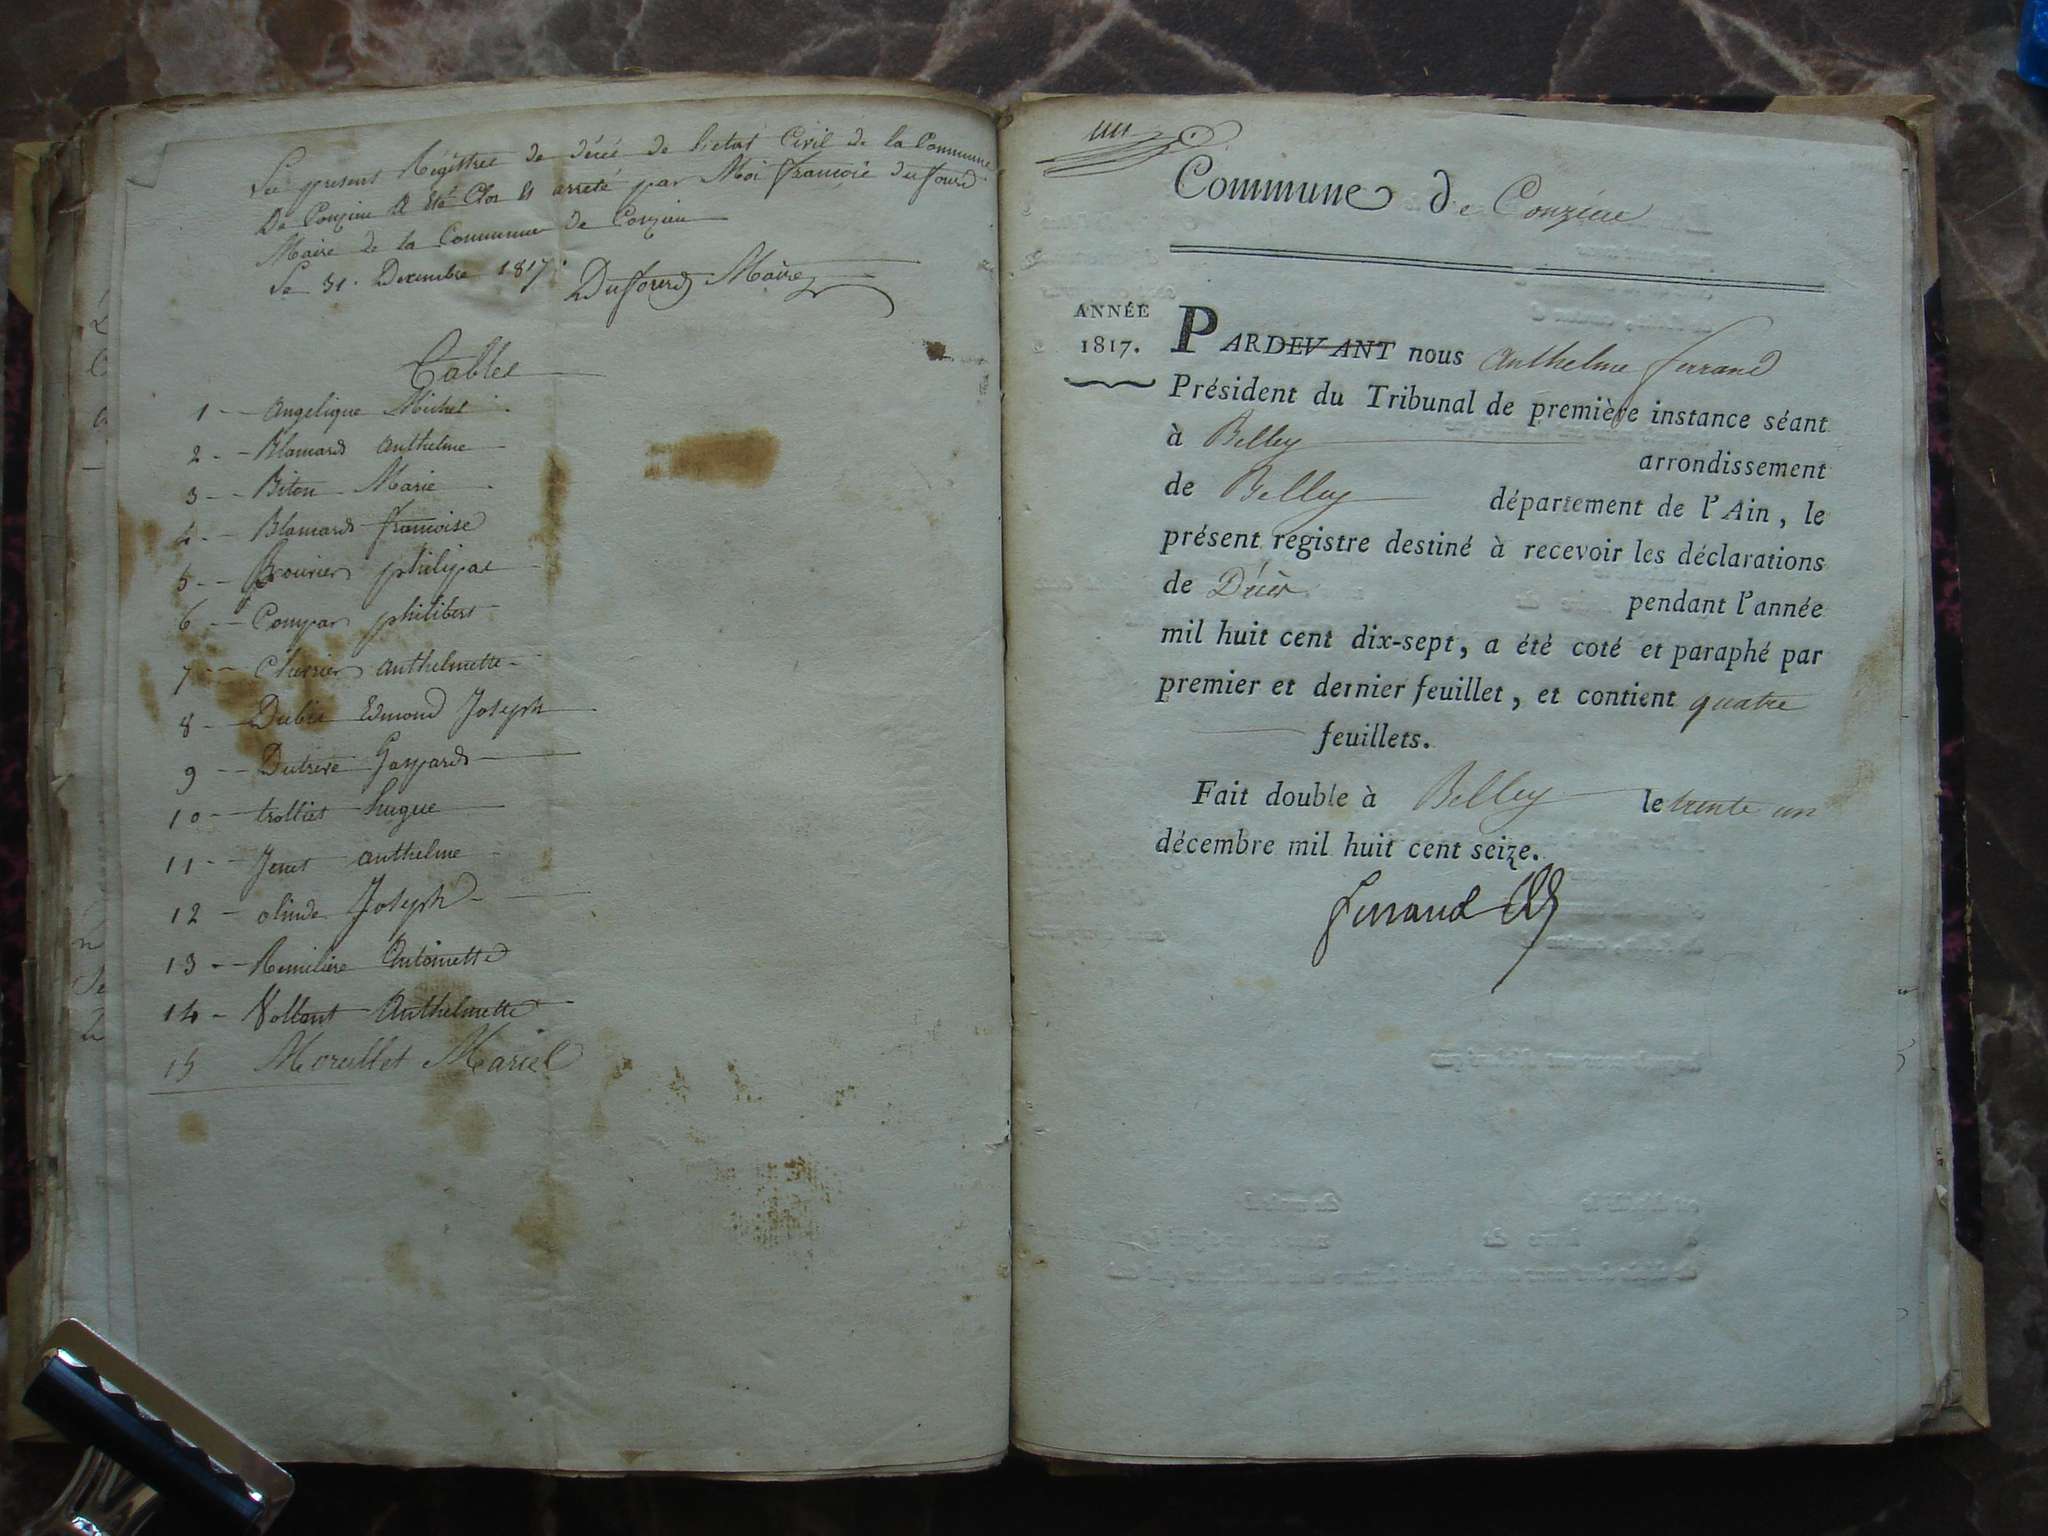 Le present Régistre de décé de l'etat Civil de la Commune
De Conzieu a été Clos et arreté par Moi françois dufourd
Maire de la Commune de Conzieu
Le 31. Decembre 1817.
Dufourd Maire
Tables
1 - Angelique Michel
2 - Blamard anthelme
3 - Biton Marie
4 - Blamard francoise
5 - philipae
6 - Compar philibert
7 - anthelmette
8 - Dubis Edmond Joseph
9 - Dutreve Gaspard
10 - trolliet hugue
11 - Jenet anthelme
12 - olinde Joseph
13 - Remiliere Antoinette
14 - Vollont Anthelmette
15 Morellet Mariel
Commune de Conzieu
ANNÉE
1817.
PARDEVANT nous Anthelme ferrand
Président du Tribunal de première instance séant
à Belley arrondissement
de Belley département de l'Ain, le
présent registre destiné à recevoir les déclarations
de Décès pendant l'année
mil huit cent dix-sept, a été coté et paraphé par
premier et dernier feuillet, et contient quatre
feuillets.
Fait double à Belley le trente un
décembre mil huit cent seize.
ferrand